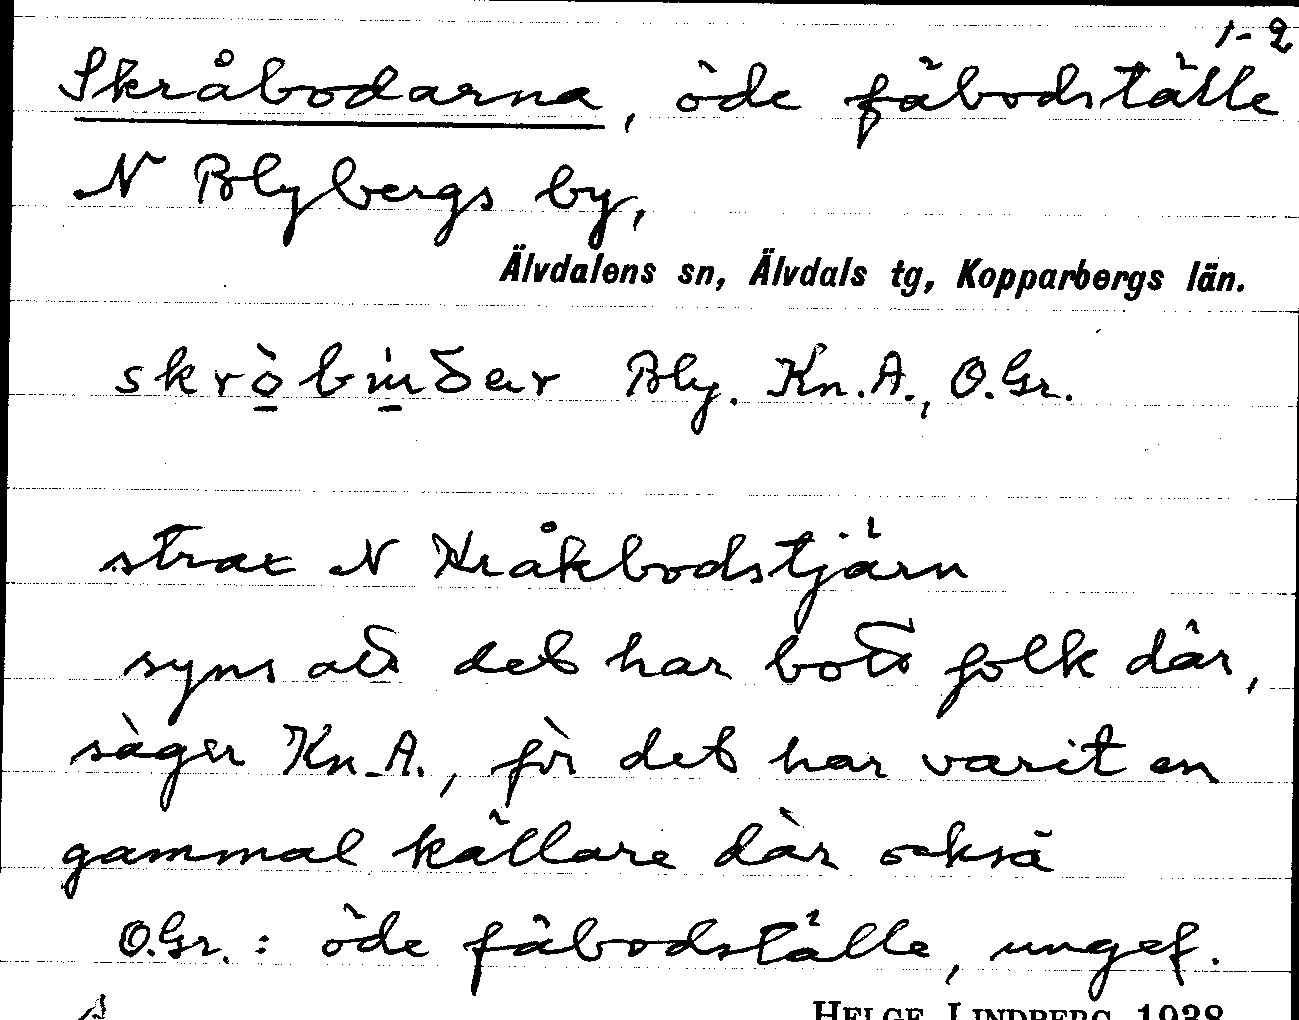 1-2
Skråbodarna, öde fäbodställe
N Blybergs by,
Älvdalens sn, Älvdals tg, Kopparbergs län.
Bly. Kn.A., O.Gr.
strax N Kråkbodstjärn
syns att det har bott folk där,
säger Kn.A., för det har varit en
gammal källare där också
O.Gr.: öde fäbodställe, ungef.
HELGE LINDBERG 1938